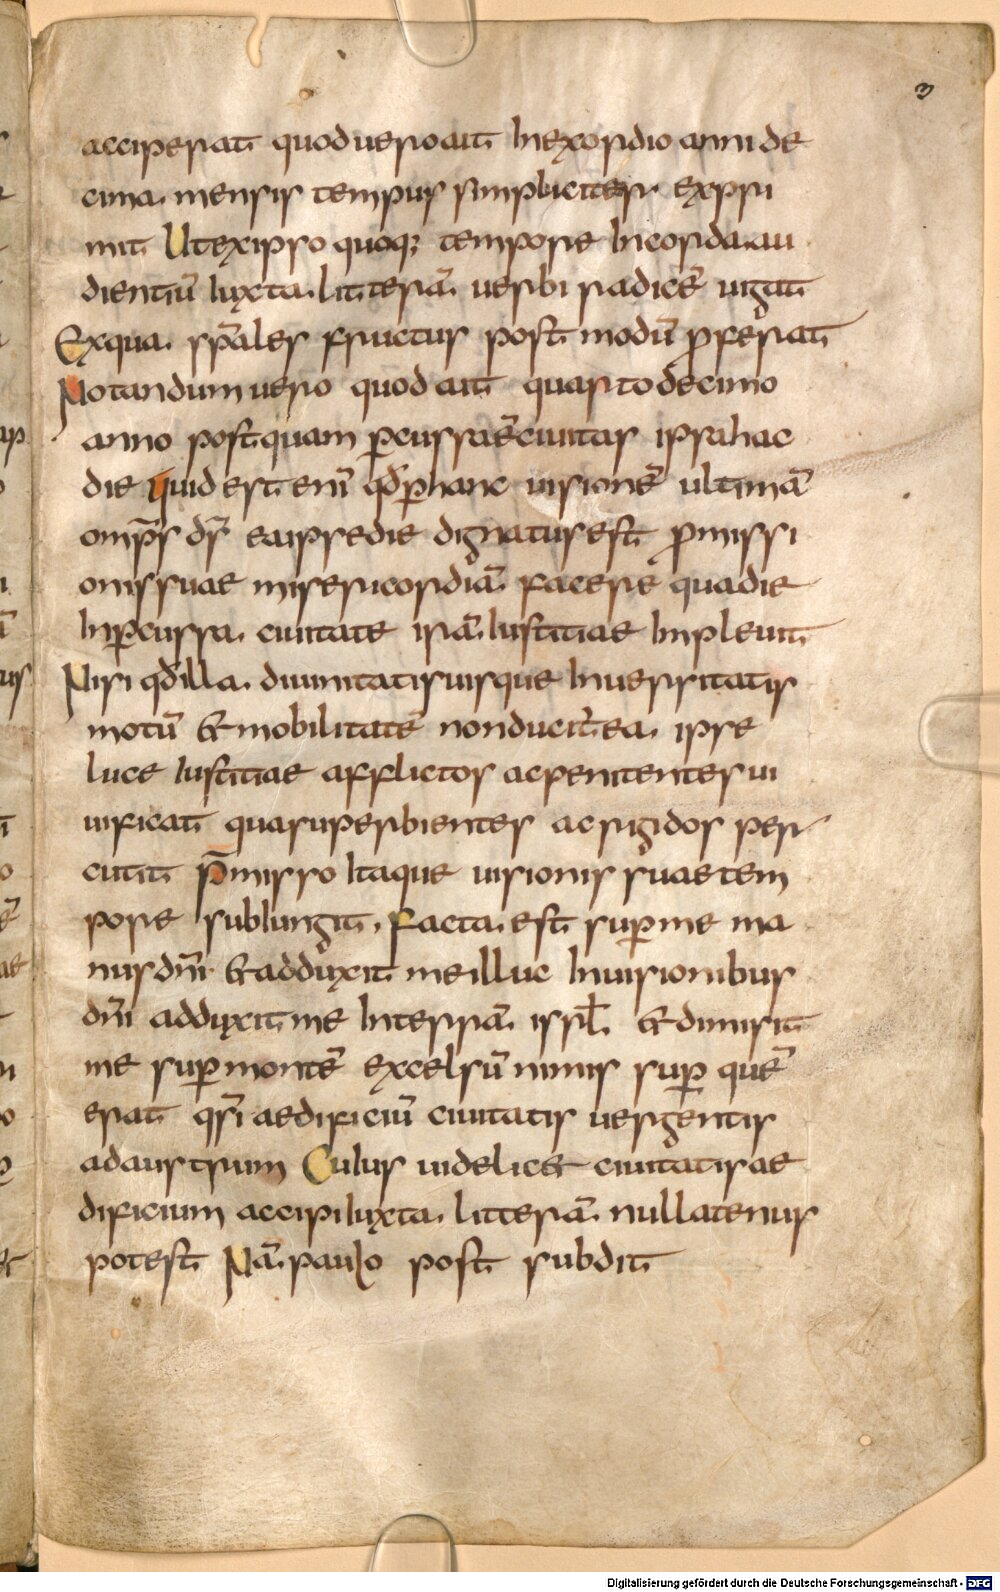 3
acciperat quod uero ait In exordio anni de
cima mensis tempus simpliciter expri
mit Ut ex ipso quoq; tempore In corda au
dientiū Iuxta litterā uerbi radicē uigat
Ex qua sp̄ales fructus post modū ꝓferat
Notandum uero quod ait quarto decimo
anno postquam ꝑcussa ē ciuitas ipsa hac
die quid est enī qđ ꝑ hanc uisionē ultimā
omp̄s ds̄ ea ipse die dignatus est ꝓmissi
onis suae misericordiā facere qua die
In ꝑcussa ciuitate irā Iustitiae Impleuit
Nisi qđ illa diuinitatis uisque In uersitatis
motū & mobilitatē non ducit̄ ea ipse
luce Iustitiae afflictos ac penitentes ui
uificat qua superbientes ac rigidos per
cutit p̄misso Itaque uisionis suae tem
pore sub Iungit, facta est suꝑ me ma
nus dn̄i & adduxit me illuc In uisionibus
dn̄i adduxit me In terrā isrł. & dimisit
me suꝑ montē excelsū nimis suꝑ quē
erat qsī aedificiū ciuitatis uergentis
ad austrum Cuius uidelic& ciuitatis ae
dificium accipi Iuxta litterā nullatenus
potest Nā paulo post subdit
Digitalisierung gefördert durch die Deutsche Forschungsgemeinschaft - DFG